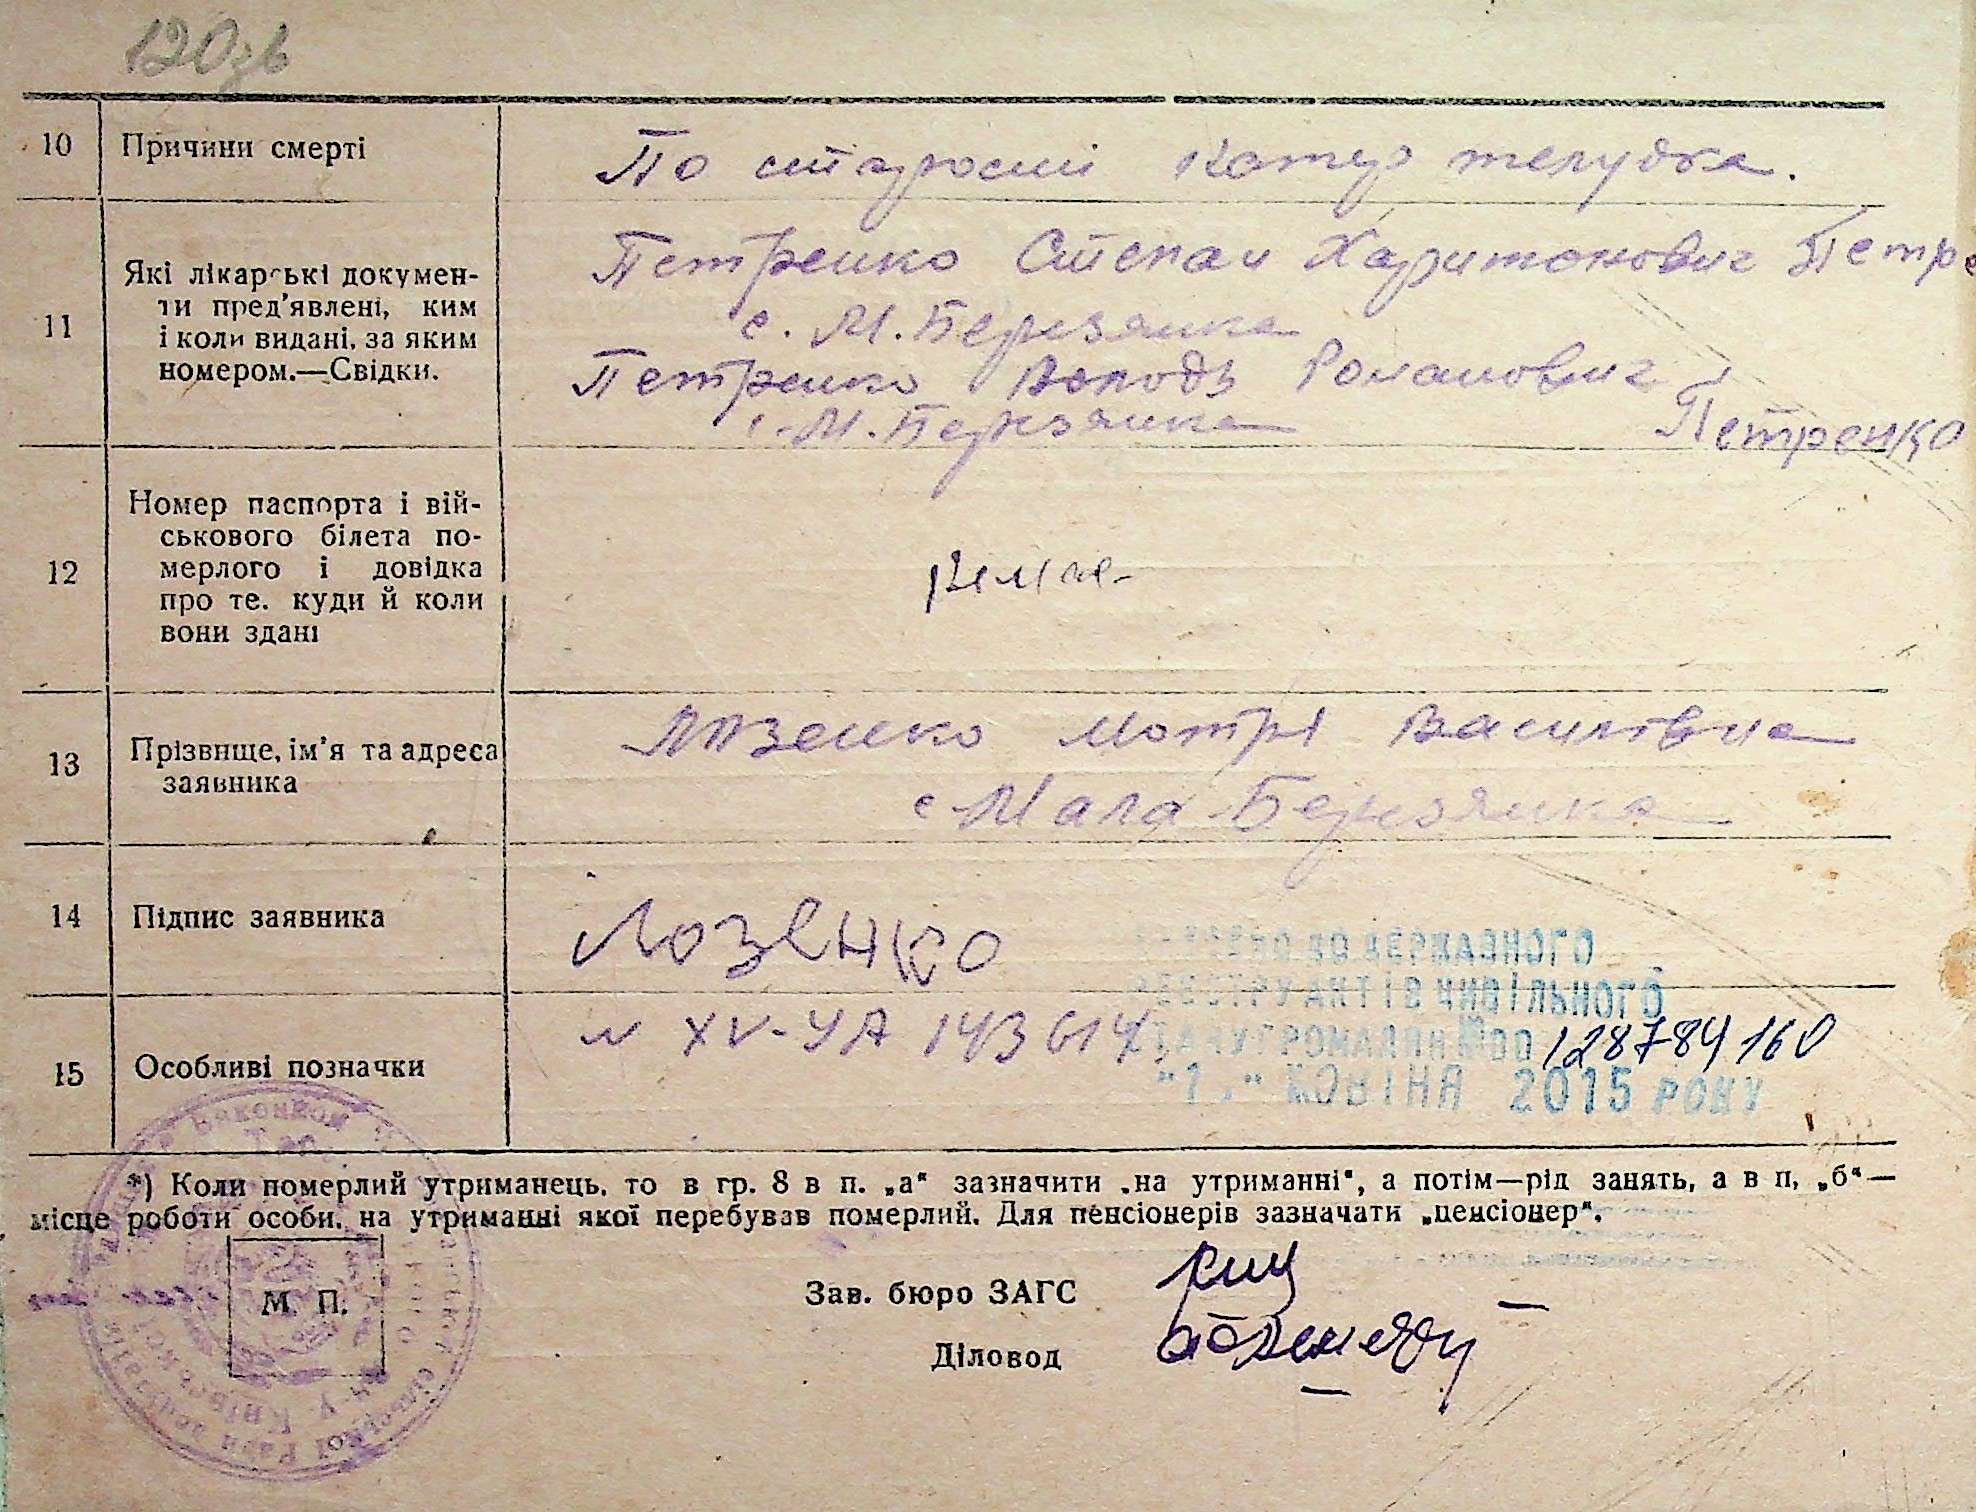 120зв
10 Причини смерті По старости катар желудка.
11 Які лікарські докумен-
ти пред'явлені, ким
і коли видані, за яким
номером.—Свідки.
Петренко Степан Харитонович Петре
с. М. Березянка
Петренко Володь Романович
с. М. Березянка Петренко
12 Номер паспорта і вій-
ськового білета по-
мерлого і довідка
про те. куди й коли
вони здані
немає
13 Прізвище, ім'я та адреса
заявника
Лозенко Мотрі Василівна
с Мала Березянка
14 Підпис заявника Лозенко
15 Особливі позначки
№ XV-УА 143614
ДО ДЕРЖАВНОГО
РЕЄСТРУ АКТІВ ЦИВІЛЬНОГО
СТАНУ ГРОМАДЯН №00128784160
2015 РОКУ
*) Коли померлий утриманець, то в гр. 8 в п. „а“ зазначити „на утриманні“, а потім—рід занять, а в п, „б“—
місце роботи особи, на утриманні якої перебував померлий. Для пенсіонерів зазначати „пенсіонер“.
М. П.
Зав. бюро ЗАГС
Діловод